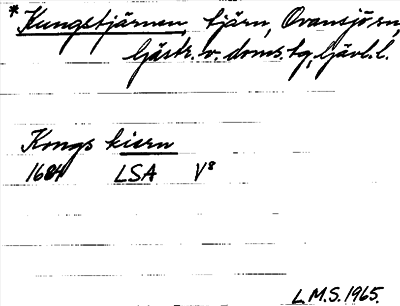 *Kungstjärnen, tjärn, Ovansjö sn,
Gästr. v. doms. tg, Gävl. l.
Kongs tiern
1684 LSA V8
L.M.S. 1965.